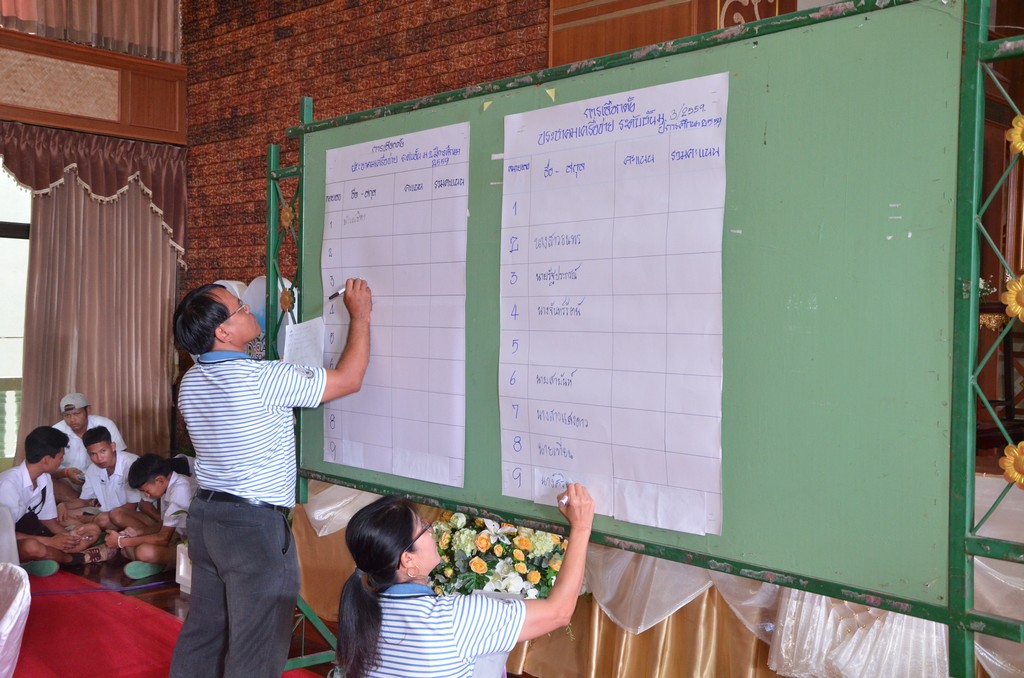 การเลือกตั้ง
ประชาคมเครือข่าย ระดับชั้น ม.
2559
หมายเลข ชื่อ - สกุล คะแนน รวมคะแนน
1
2
3
4
5
8
9
การเลือกตั้ง
ประชาคมเครือข่าย ระดับชั้น ม. 3/2559
ปีการศึกษา 2559
หมายเลข ชื่อ - สกุล คะแนน รวมคะแนน
1
2 นางสาวธนพร
3 นายรัฐประกรณ์
4 นางจันทร์รัตน์
5
6 นายเสานันท์
7 นางสาวแสงดาว
8 นายเทียน
9